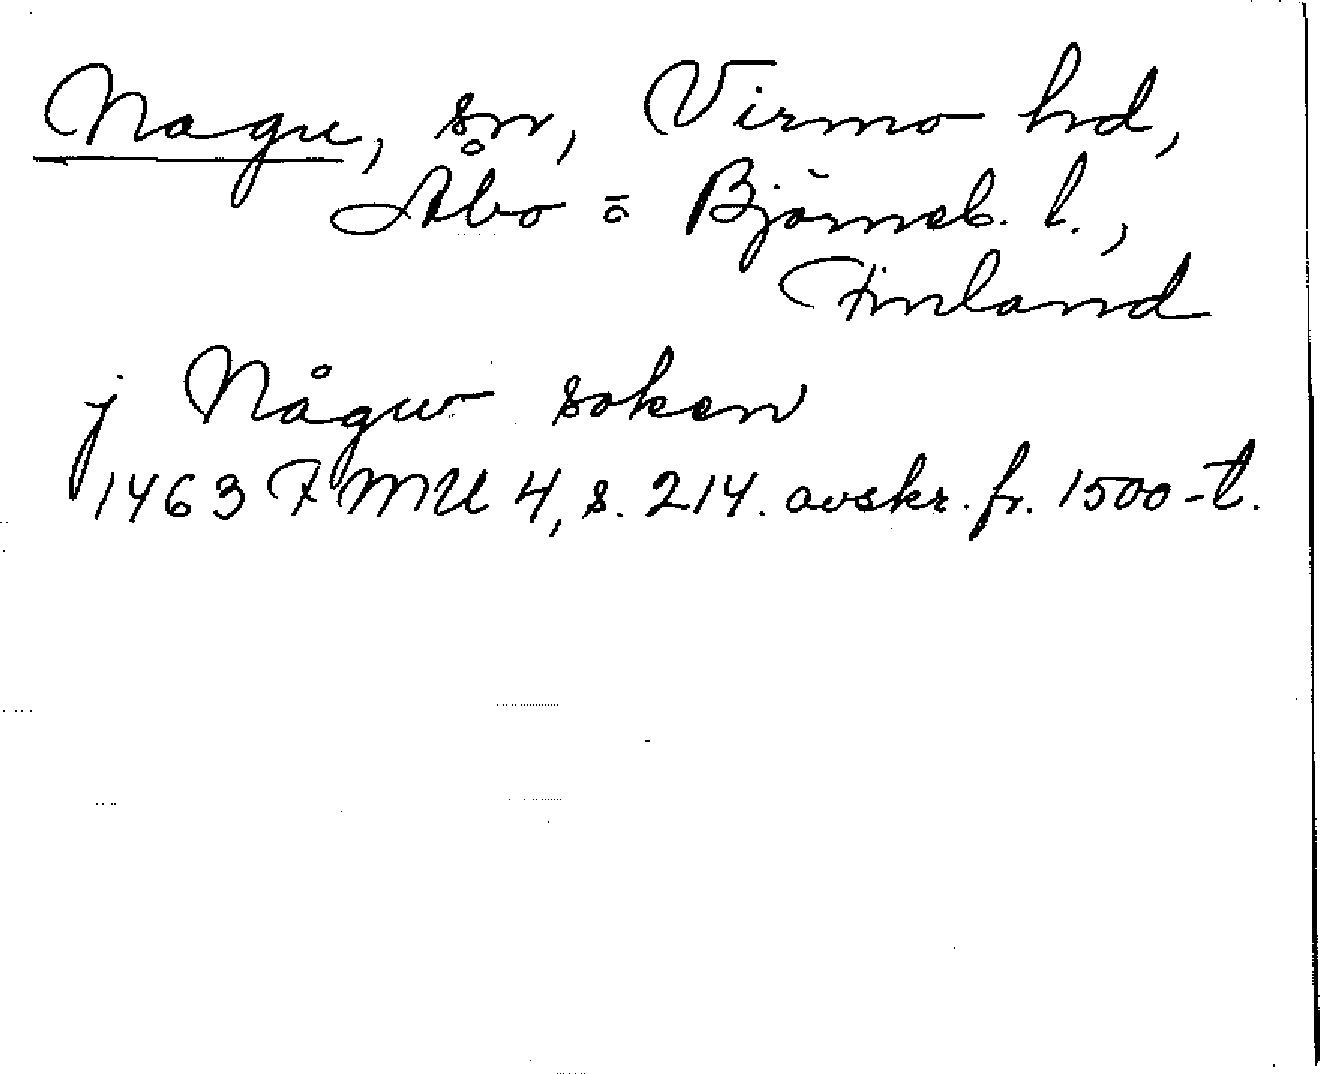 Nagu, sn, Virmo hd,
Åbo o Björneb. l.,
Finland
j Någw soken
1463 FMU 4, s. 214. avskr. fr. 1500-t.